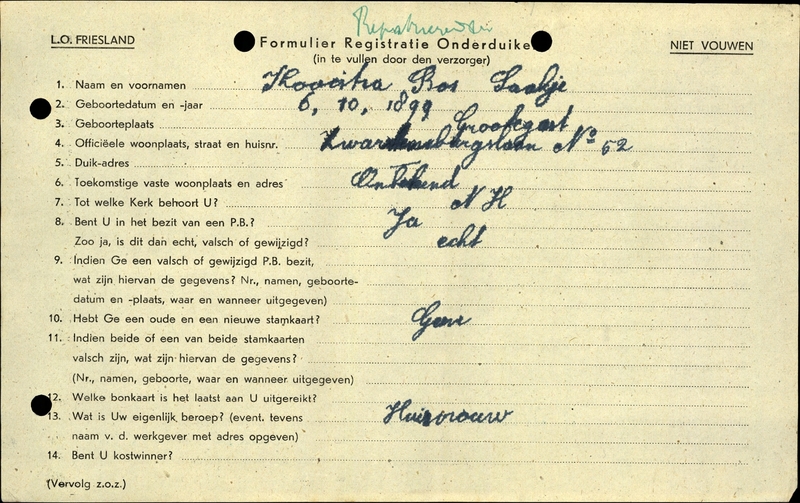 L.O. FRIESLAND
Formulier Registratie Onderduike
(in te vullen door den verzorger)
NIET VOUWEN
1. Naam en voornamen Bos Saakje
2. Geboortedatum en -jaar 6, 10, 1899
3. Geboorteplaats Grootegast
4. Officiëele woonplaats, straat en huisnr. No 52
5. Duik-adres
6. Toekomstige vaste woonplaats en adres Onbekend
7. Tot welke Kerk behoort U? N H
8. Bent U in het bezit van een P.B.? Ja
Zoo ja, is dit dan echt, valsch of gewijzigd? echt
9. Indien Ge een valsch of gewijzigd P.B. bezit,
wat zijn hiervan de gegevens? Nr., namen, geboorte-
datum en -plaats, waar en wanneer uitgegeven)
10. Hebt Ge een oude en een nieuwe stamkaart? Geen
11. Indien beide of een van beide stamkaarten
valsch zijn, wat zijn hiervan de gegevens?
(Nr., namen, geboorte, waar en wanneer uitgegeven)
12. Welke bonkaart is het laatst aan U uitgereikt?
13. Wat is Uw eigenlijk beroep? (event. tevens Huisvrouw
naam v. d. werkgever met adres opgeven)
14. Bent U kostwinner?
(Vervolg z.o.z.)